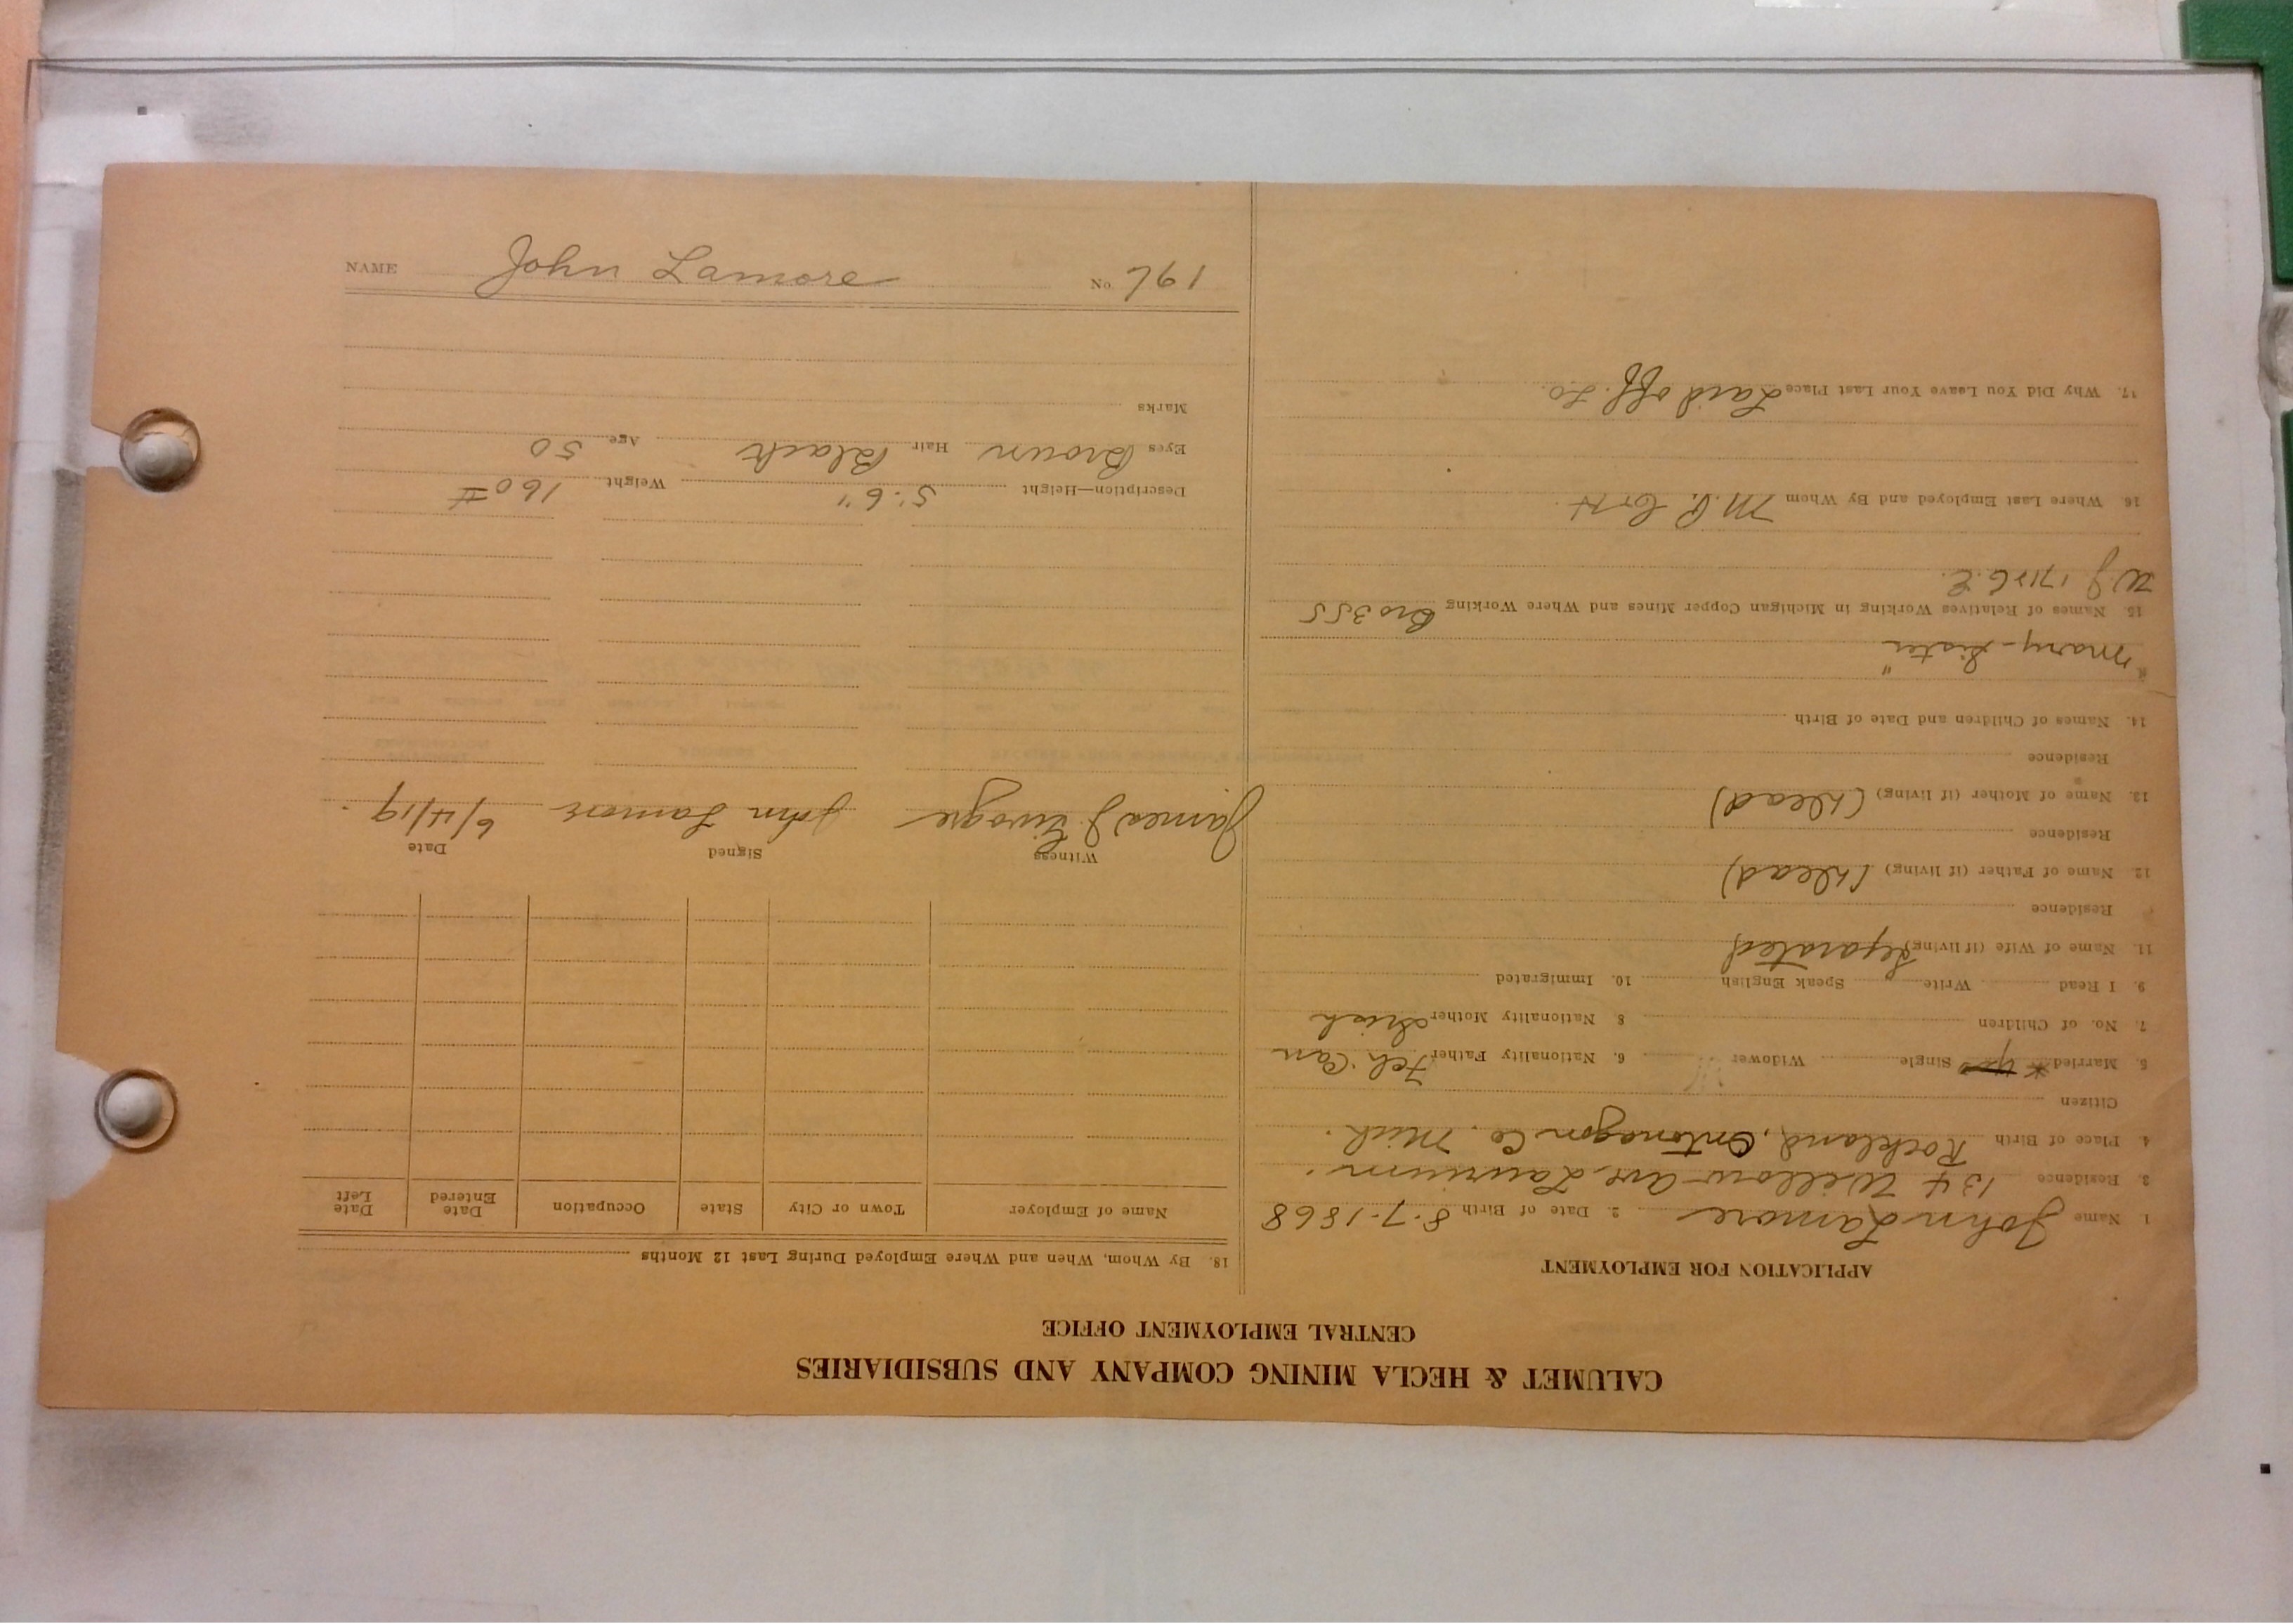 CALUMET & HECLA MINING COMPANY AND SUBSIDIARIES
CENTRAL EMPLOYMENT OFFICE
APPLICATION FOR EMPLOYMENT
1 Name John Lamore 2. Date of Birth 8-7-1868
3. Residence 134 Willow Ave Laurium.
4. Place of Birth Rockland, Ontonagon Co. Mich.
Citizen
5. Married * yes Single Widower 6. Nationality Father Fch. Can
7. No. of Children 8 Nationality Mother Irish
9. I Read Write Speak English 10. Immigrated
11. Name of Wife (if living) Separated
Residence
12. Name of Father (if living) (dead)
Residence
13. Name of Mother (if living) (dead)
Residence
14. Names of Children and Date of Birth
" Mary - Sister "
15. Names of Relatives Working in Michigan Copper Mines and Where Working Bro 355
16 Where Last Employed and By Whom
17. Why Did You Leave Your Last Place Laid off.
18. By Whom, When and Where Employed During Last 12 Months
Name of Employer Town or City State Occupation Date Entered Date Left
Witness Signed Date
James J. John Lamore 6/4/19.
Description—Height 5'.6" Weight 160 #
Eyes Brown Hair Black Age 50
Marks
NAME John Lamore No. 761